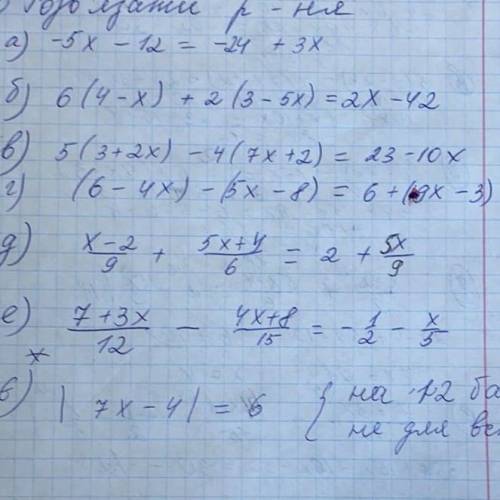 р-ня
а) -5x - 12 = -24 + 3x
б) 6(4 - x) + 2(3 - 5x) = 2x - 42
в) 5(3 + 2x) - 4(7x + 2) = 23 - 10x
г) (6 - 4x) - (5x - 8) = 6 + (9x - 3)
д) \frac{x-2}{9} + \frac{5x+4}{6} = 2 + \frac{5x}{9}
е) \frac{7+3x}{12} - \frac{4x+8}{15} = -\frac{1}{2} - \frac{x}{5}
*
в) |7x - 4| = 6 { на 12 ба
не для вс